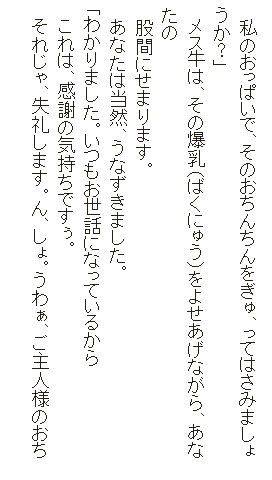 私のおっぱいで、そのおちんちんをぎゅ、ってはさみましょ
うか?」
メス牛は、その爆乳(ばくにゅう)をよせあげながら、あな
たの
股間にせまります。
あなたは当然、うなずきました。
「わかりました。いつもお世話になっているから
これは、感謝の気持ちですぅ。
それじゃ、失礼します。ん、しょ。うわぁ、ご主人様のおち